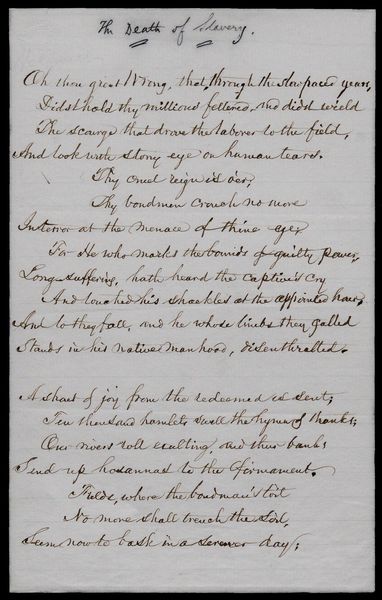 The Death of Slavery.
Oh thou great Wrong, that, through the slow paced years,
Didst hold thy millions fettered, and didst wield
The scourge that drove the laborer to the field,
And look with stony eye on human tears.
Thy cruel reign is o'er;
Thy bondmen crouch no more
In terror at the menace of thine eye;
For He who marks the bounds of guilty power,
Long-suffering, hath heard the captive's cry
And touched his shackles at the appointed hour,
And lo they fall, and he whose limbs they galled
Stands in his native manhood, disenthralled.
A shout of joy from the redeemed is sent;
Ten thousand hamlets swell the hymn of thanks;
Our rivers roll exulting, and their banks
Send up hosannas to the firmament.
Fields, where the bondman's toil
No more shall trench the soil,
Seem now to bask in a serener day;